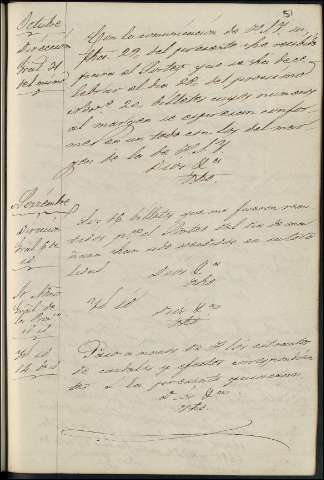 51
Octubre
Dirección
Gral 31
del mismo
Con la comunicación de V.I. su
fha 29, del presente he recibido
para el Sorteo que se ha de ce
lebrar el dia 28, del proximo
Nov.e 20, billetes cuyos numeros
al margen se espresan confor
mes en un todo con los del mar
gen de la de V.I.
Dios &a
Noviembre
Dirección
Gral 6 de
id
Los 16 billetes que me fueron remi
tidos para el Sorteo del dia de ma
ñana han sido vendidos en su tota
lidad
Dios &a
id id
Dios &a
Gral de
id id
id id
14 de id
Paso a manos de V. los estados
de caudales y efectos correspondien
tes a la presente quincena.
Dios &a